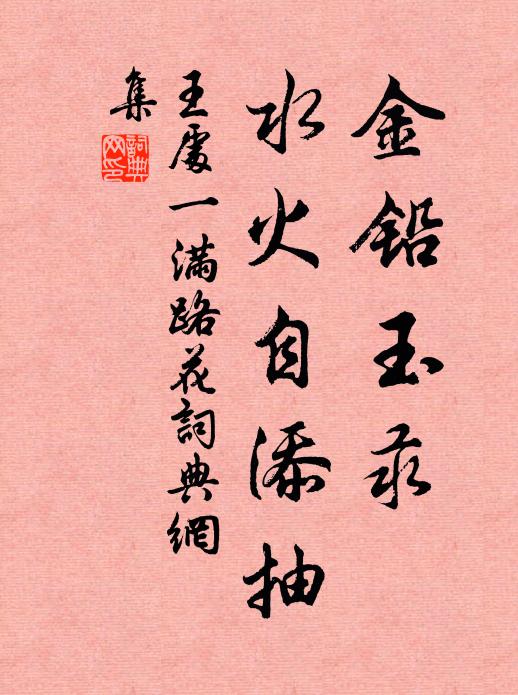 金鉛玉汞
水火自添抽
王處一滿路花詞典網
集
詞典
网印